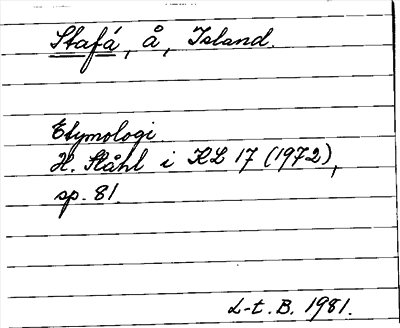 Stafá, å, Island.
Etymologi
H. Ståhl i KL 17 (1972),
sp. 81.
L-t. B. 1981.